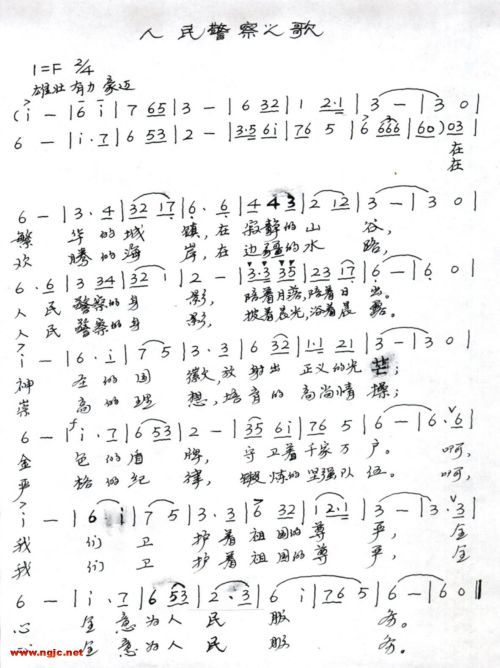 人民警察之歌
1=F 2/4
雄壮 有力 豪迈
(i - | 6 i | 7 65 | 3 - | 6 32 | 1 2·1 | 3 - | 3 0 |
6 - | i·7 | 6 53 | 2 - | 3·5 6i | 76 5 | 6 666 | 60) 03 |
在
在
6 - | 3·4 | 32 17 | 6·6 | 4 43 | 2 12 | 3 - | 3 0 |
繁 华的城 镇,在 寂静的山 谷,
欢 腾的海 岸,在 边疆的水 路,
6·6 | 3 34 | 32 1 | 2 - | 3·3 35 | 23 17 | 6 - | 6 0 |
人民 警察的身 影, 陪着月落,陪着日 出。
人民 警察的身 影, 披着晨光,浴着晨 露。
i - | 6·i | 7 5 | 3·3 | 6 32 | 1·1 21 | 3 - | 3 0 |
神 圣的国 徽,放射出 正义的光 芒;
崇 高的理 想,培育的 高尚情 操;
6 - | i·7 | 6 53 | 2 - | 35 6i | 76 5 | 6 - | 6·6 |
金 色的盾 牌, 守卫着千家万 户。 啊,
严 格的纪 律, 锻炼的坚强队 伍。 啊,
i - | 6 i | 7 5 | 3·3 | 6 32 | 1 2·1 | 3 - | 3·3 |
我 们 卫 护着 祖国的尊 严, 全
我 们 卫 护着 祖国的尊 严, 全
6 - | i·7 | 6 53 | 2·3 | 6 i | 76 5 | 6 - | 6 0 ‖
心 全意为人 民 服 务。
心 全意为人 民 服 务。
www.ngjc.net